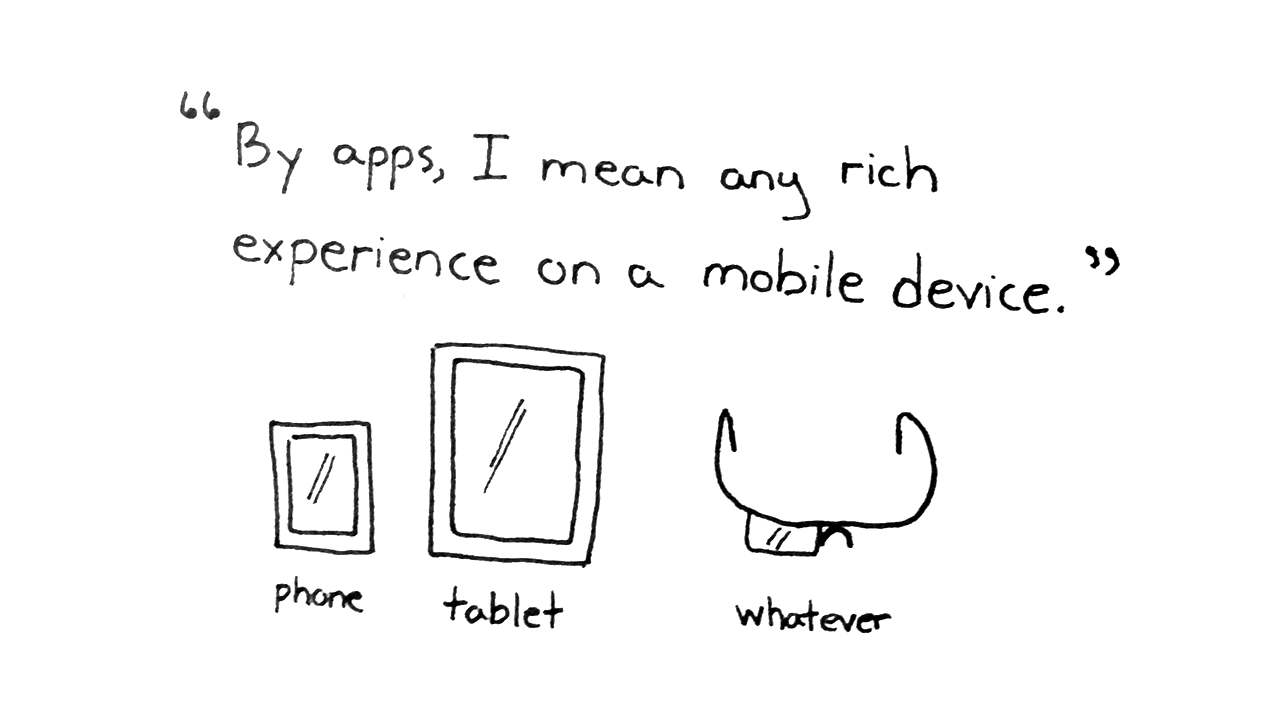 “By apps, I mean any rich
experience on a mobile device.”
phone
tablet
whatever